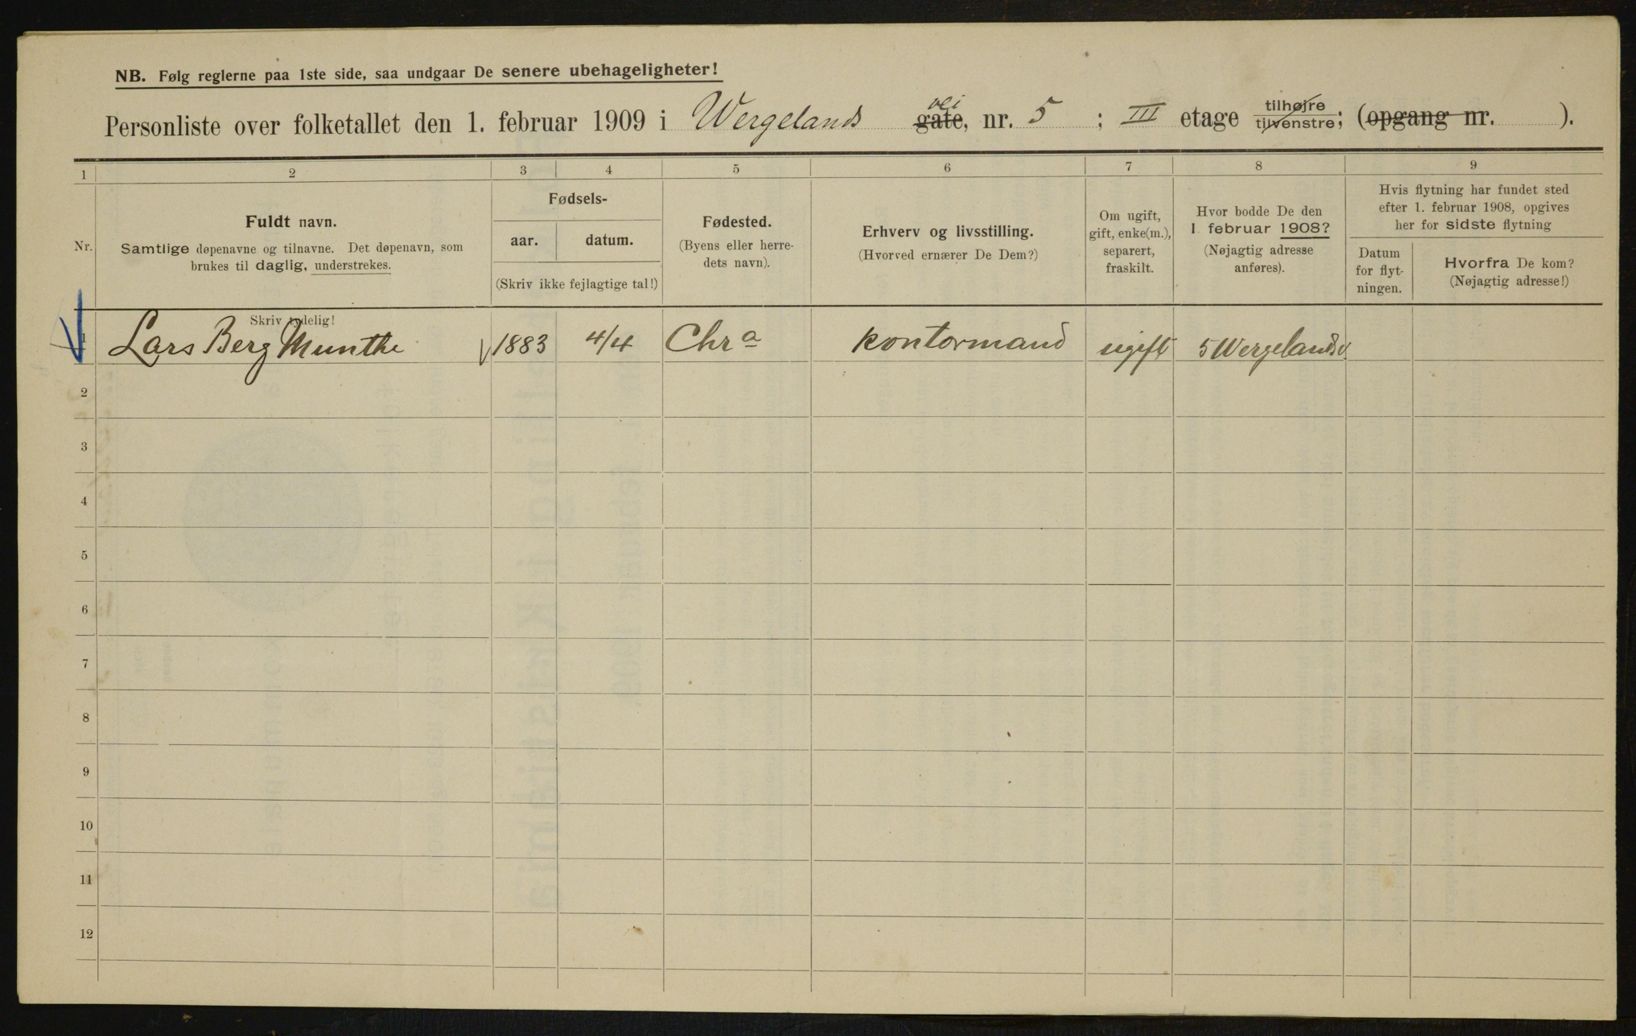 NB. Følg reglerne paa 1ste side, saa undgaar De senere ubehageligheter!
Personliste over folketallet den 1. februar 1909 i Wergelands gate, vei nr. 5 ; III etage tilhøjre tilvenstre; (opgang nr. ).
1 2 3 4 5 6 7 8 9
Nr.
Fuldt navn.
Samtlige døpenavne og tilnavne. Det døpenavn, som
brukes til daglig, understrekes.
Fødsels-
aar. datum.
(Skriv ikke fejlagtige tal!)
Fødested.
(Byens eller herre-
dets navn).
Erhverv og livsstilling.
(Hvorved ernærer De Dem?)
Om ugift,
gift, enke(m.),
separert,
fraskilt.
Hvor bodde De den
1. februar 1908?
(Nøjagtig adresse
anføres).
Hvis flytning har fundet sted
efter 1. februar 1908, opgives
her for sidste flytning
Datum
for flyt-
ningen.
Hvorfra De kom?
(Nøjagtig adresse!)
Skriv tydelig!
1 Lars Berg Munthe 1883 4/4 Chra kontormand ugift 5 Wergelandsv
2
3
4
5
6
7
8
9
10
11
12